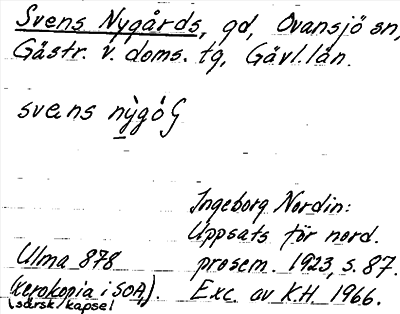 Svens Nygårds, gd, Ovansjö sn,
Gästr. v. doms. tg, Gävl. län.
svens nỳgóG
Ingeborg Nordin:
Uppsats för nord.
prosem. 1923, s. 87.
Exc. av K.H. 1966.
Ulma 878
(Xerokopia i SOA,
särsk. kapsel).